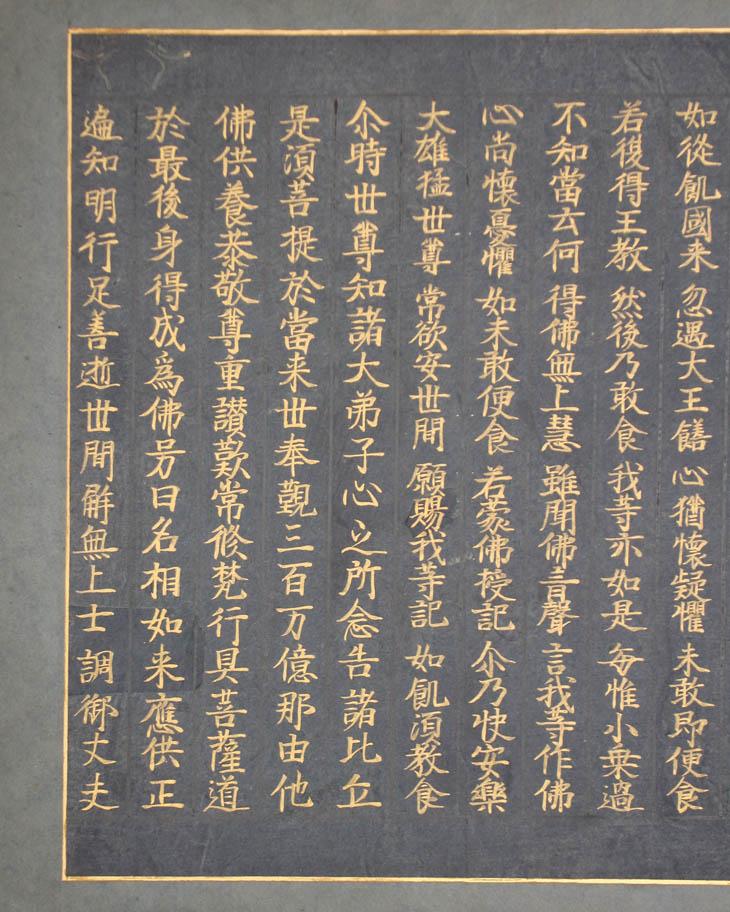 如從飢國来 忽遇大王饍 心猶懷疑懼 未敢即便食
若復得王教 然後乃敢食 我等亦如是 每惟小乗過
不知當云何 得佛無上慧 雖聞佛音聲 言我等作佛
心尚懷憂懼 如未敢便食 若蒙佛授記 尒乃快安樂
大雄猛世尊 常欲安世間 願賜我等記 如飢湏教食
尒時世尊知諸大弟子心之所念告諸比丘
是湏菩提於當来世奉覲三百万億那由他
佛供養恭敬尊重讃歎常修梵行具菩薩道
於最後身得成為佛号曰名相如来應供正
遍知明行足善逝世間解無上士調御丈夫